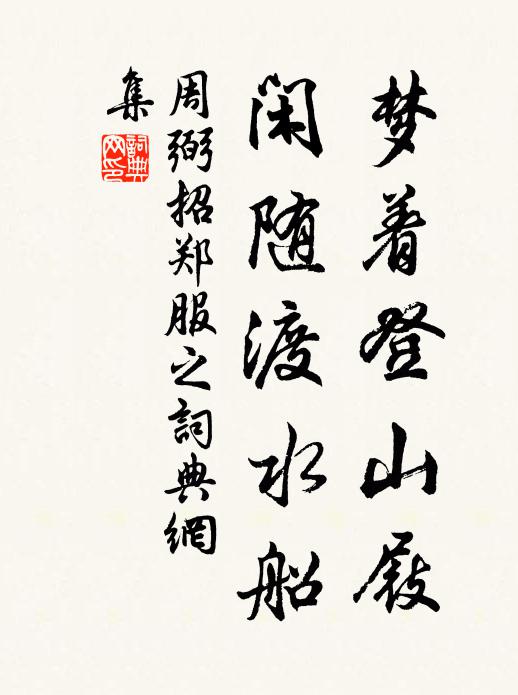 梦着登山屐
闲随渡水船
周弼招郑服之詞典網
集
詞典
网印